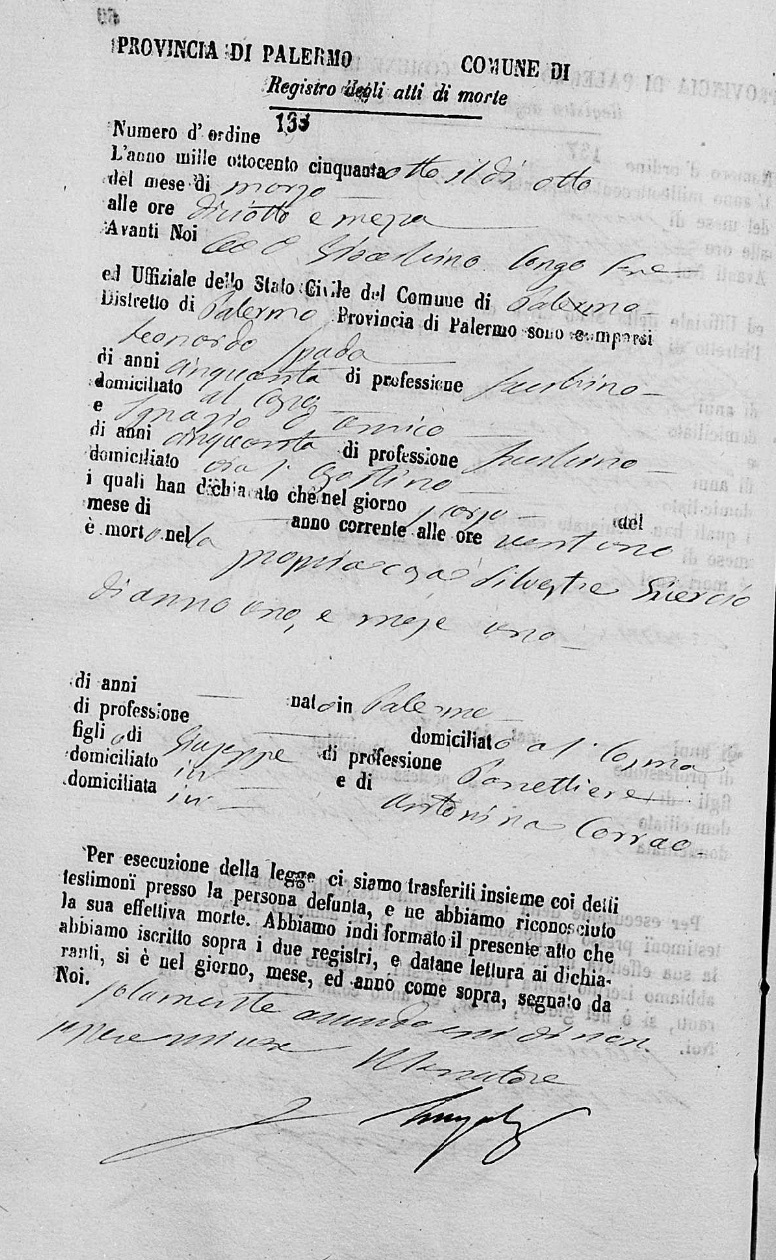 PROVINCIA DI PALERMO COMUNE DI
Registro degli atti di morte
Numero d' ordine 133
L'anno mille ottocento cinquantaotto il dì otto
del mese di marzo
alle ore diciotto e mezza
Avanti Noi Longo
ed Uffiziale dello Stato Civile del Comune di Palermo
Distretto di Palermo Provincia di Palermo sono comparsi
Leonardo Spada
di anni cinquanta di professione
domiciliato al
e Ignazio d'Amico
di anni cinquanta di professione
domiciliato Agostino
i quali han dichiarato che nel giorno del
mese di anno corrente alle ore ventuno
è morto nella
propria casa Silvestre Guercio
di anno uno, e mese uno
di anni nato in Palermo
di professione domiciliato a S. Cosmo
figlio di Giuseppe di professione Panettiere
domiciliato ivi e di
domiciliata ivi Antonina Corrao
Per esecuzione della legge ci siamo trasferiti insieme coi detti
testimonî presso la persona defunta, e ne abbiamo riconosciuto
la sua effettiva morte. Abbiamo indi formato il presente atto che
abbiamo iscritto sopra i due registri, e datane lettura ai dichia-
ranti, si è nel giorno, mese, ed anno come sopra, segnato da
Noi. solamente avendo essi di non
sapere scrivere Il Senatore